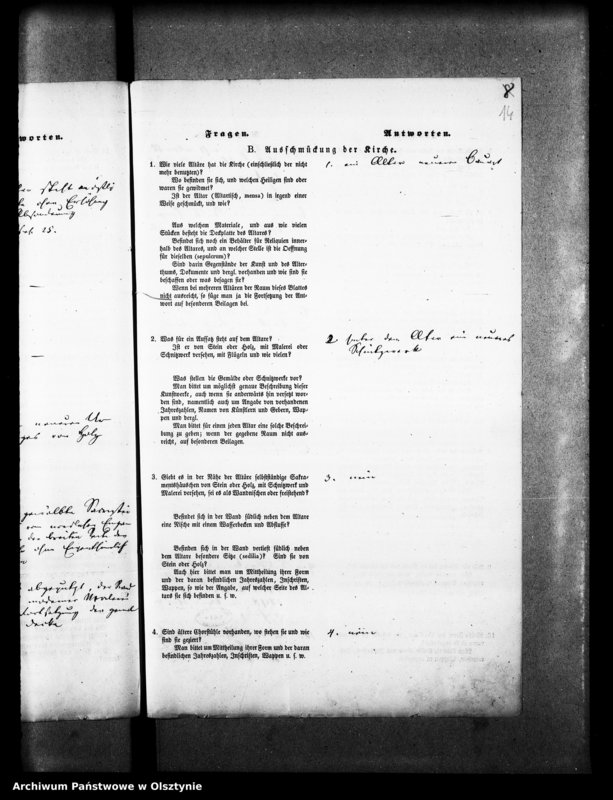 worten.
8
14
Fragen.
Antworten.
B. Ausschmückung der Kirche.
1. Wie viele Altäre hat die Kirche (einschließlich der nicht
mehr benutzten)?
Wo befinden sie sich, und welchen Heiligen sind oder
waren sie gewidmet?
Ist der Altar (Altartisch, mensa) in irgend einer
Weise geschmückt, und wie?
Aus welchem Materiale, und aus wie vielen
Stücken besteht die Deckplatte des Altares?
Befindet sich noch ein Behälter für Reliquien inner-
halb des Altares, und an welcher Stelle ist die Oeffnung
für dieselben (sepulcrum)?
Sind darin Gegenstände der Kunst und des Alter-
thums, Dokumente und dergl. vorhanden und wie sind sie
beschaffen oder was besagen sie?
Wenn bei mehreren Altären der Raum dieses Blattes
nicht ausreicht, so füge man ja die Fortsetzung der Ant-
wort auf besonderen Beilagen bei.
1. ein Altar neuerer
2. Was für ein Aufsatz steht auf dem Altare?
Ist er von Stein oder Holz, mit Malerei oder
Schnitzwerk versehen, mit Flügeln und wie vielen?
Was stellen die Gemälde oder Schnitzwerke vor?
Man bittet um möglichst genaue Beschreibung dieser
Kunstwerke, auch wenn sie anderwärts hin versetzt wor-
den sind, namentlich auch um Angabe von vorhandenen
Jahreszahlen, Namen von Künstlern und Gebern, Wap-
pen und dergl.
Man bittet für einen jeden Altar eine solche Beschrei-
bung zu geben; wenn der gegebene Raum nicht aus-
reicht, auf besonderen Beilagen.
2. ein neueres
Schnitzwerk
3. Giebt es in der Nähe der Altäre selbstständige Sakra-
mentshäuschen von Stein oder Holz, mit Schnitzwerk und
Malerei versehen, sei es als Wandnischen oder freistehend?
Befindet sich in der Wand südlich neben dem Altare
eine Nische mit einem Wasserbecken und Abflusse?
Befinden sich in der Wand vertieft südlich neben
dem Altare besondere Sitze (sedilia)? Sind sie von
Stein oder Holz?
Auch hier bittet man um Mittheilung ihrer Form
und der daran befindlichen Jahreszahlen, Inschriften,
Wappen, so wie der Angabe, auf welcher Seite des Al-
tars sie sich befinden u. s. w.
3. nein
4. Sind ältere Chorstühle vorhanden, wo stehen sie und wie
sind sie geziert?
Man bittet um Mittheilung ihrer Form und der daran
befindlichen Jahreszahlen, Inschriften, Wappen u. s. w.
4. nein
von Holz
Archiwum Państwowe w Olsztynie